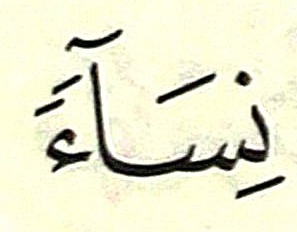 نِسَآءَ